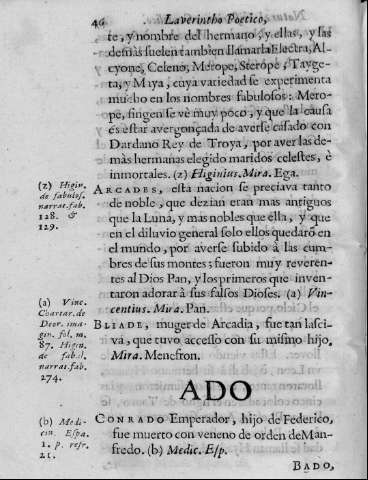 46 Laverintho Poetico,
te, y nombre del hermano; y ellas, y las
demàs suelen tambien llamarla Electra, Al-
cyone, Celeno, Merope, Sterope, Tayge-
ta, y Maya, cuya variedad se experimenta
mucho en los nombres fabulosos: Mero-
pe, fingen se vè muy poco, y que la causa
es estar avergonçada de averse casado con
Dardano Rey de Troya, por aver las de-
màs hermanas elegido maridos celestes, è
inmortales. (z) Higinius. Mira. Ega.
(z) Higin.
de fabulos.
narrat. fab.
128. &
129.
ARCADES, esta nacion se preciava tanto
de noble, que dezian eran mas antiguos
que la Luna, y mas nobles que ella, y que
en el diluvio general solo ellos quedarõ en
el mundo, por averse subido à las cum-
bres de sus montes; fueron muy reveren-
tes al Dios Pan, y los primeros que inven-
taron adorar à sus falsos Dioses. (a) Vin-
centius. Mira. Pan.
(a) Vinc.
Chartar. de
Deor. imagin. fol. m.
87. Higin.
de fabul.
narrat. fab.
274.
BLIADE, muger de Arcadia, fue tan lasci-
va, que tuvo accesso con su mismo hijo.
Mira. Menefron.
ADO
(b) Medic.
in. Espa.
1. p. refr.
21.
CONRADO Emperador, hijo de Federico,
fue muerto con veneno de orden de Man-
fredo. (b) Medic. Esp.
BADO,